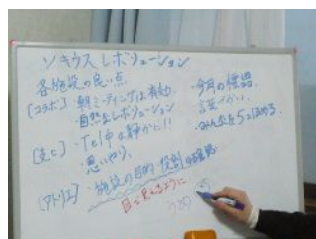 ソキウスレボリューション
各施設の良い点
[コラボ] 朝ミーティングは有効
・自然とレボリューション
・Tel中は静かに!!
・思いやり
[アトリエ]・施設の目的 役割の確認
目に見えるように
・今月の標語
言葉づかい
・みんなを5つほめる